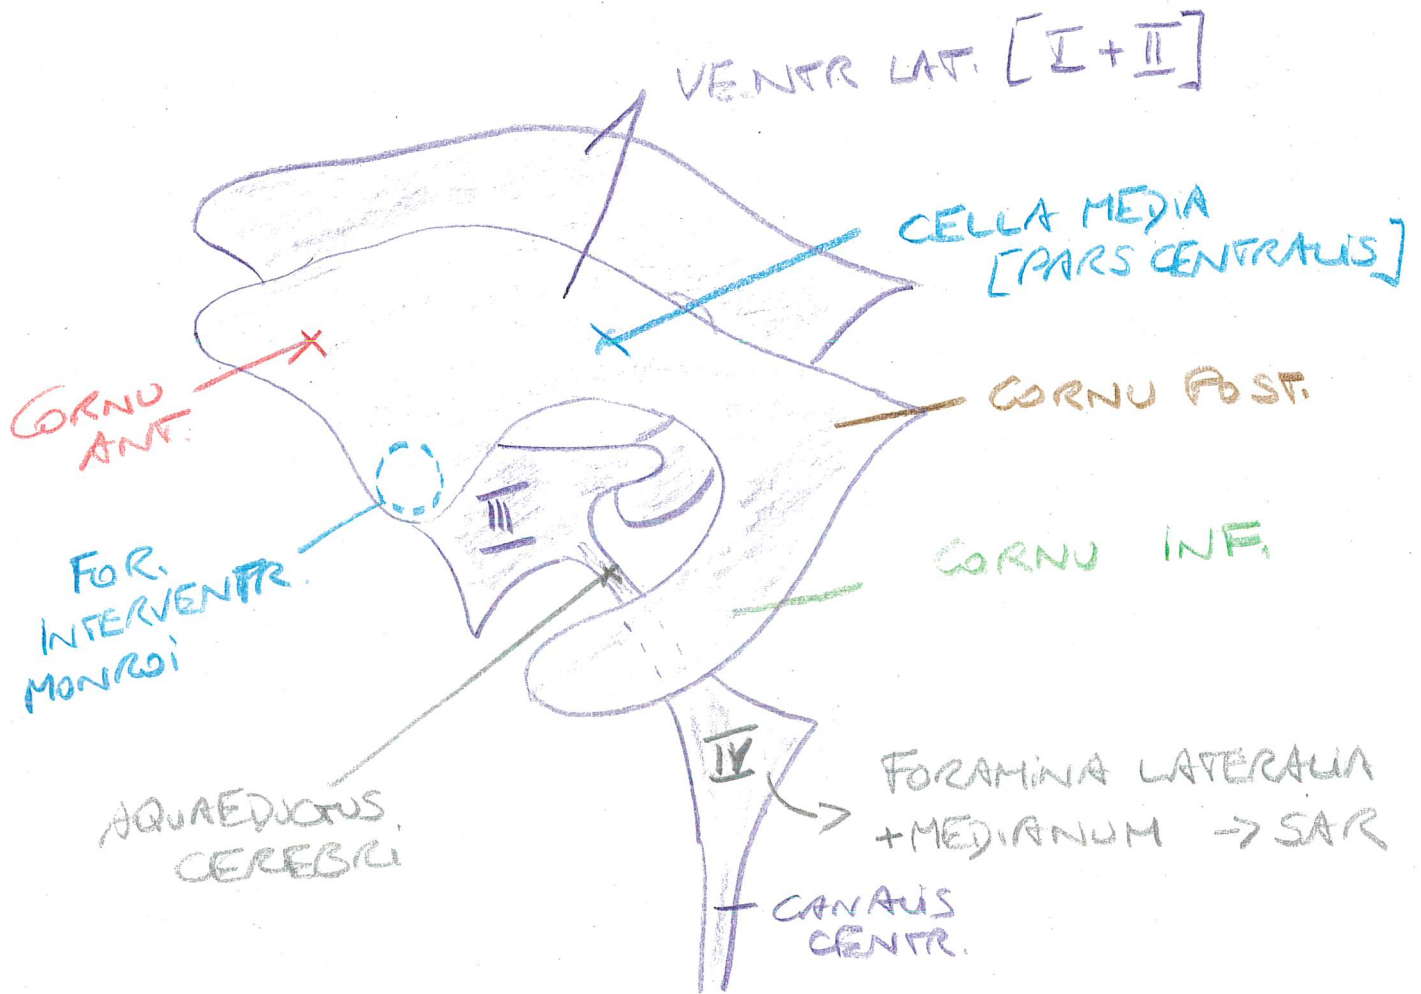 VENTR LAT. [I + II]
CELLA MEDIA
[PARS CENTRALIS]
CORNU
ANT.
CORNU POST.
III
FOR.
INTERVENTR.
MONROI
CORNU INF.
IV
AQUAEDUCTUS
CEREBRI
FORAMINA LATERALIA
+MEDIANUM -> SAR
CANALIS
CENTR.